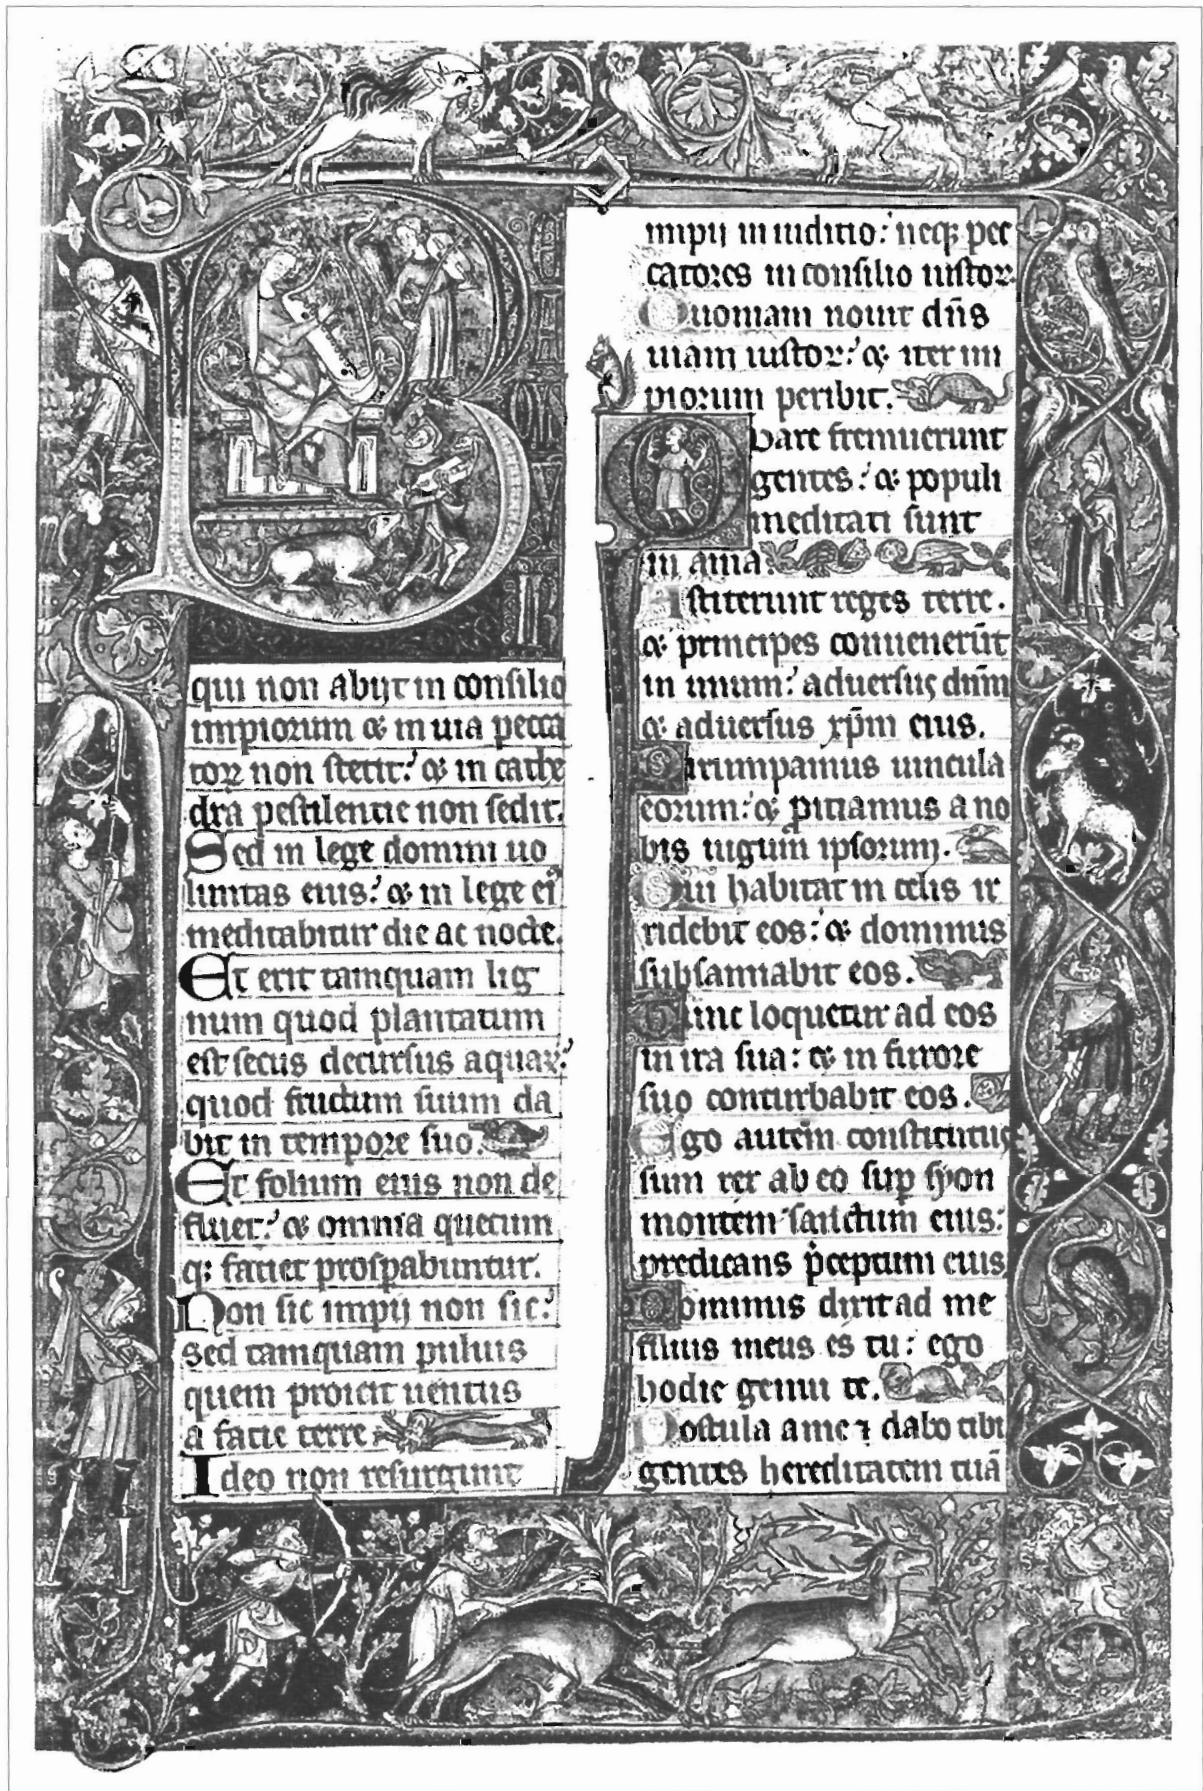 B
qui non abijt in consilio
impiorum & in uia pecca
toꝝ non stetit: & in cathe
dra pestilentie non sedit.
Sed in lege domini uo
luntas eius: & in lege eiꝰ
meditabitur die ac nocte.
Et erit tamquam lig
num quod plantatum
est secus decursus aquaꝝ:
quod fructum suum da
bit in tempore suo.
Et folium eius non de
fluet: & omnia quecum
qꝫ faciet prosꝑabuntur.
Non sic impij non sic:
sed tamquam puluis
quem proicit uentus
a facie terre
Ideo non resurgunt
impij in iuditio: neqꝫ pec
catores in consilio iustoꝝ.
Quoniam nouit dn̄s
uiam iustoꝝ: & iter im
piorum peribit.
Quare fremuerunt
gentes: & populi
meditati sunt
in ania:
Astiterunt reges terre.
& principes conuenerūt
in unum: aduersus dn̄m
& aduersus xp̄m eius.
Dirumpamus uincula
eorum: & ꝓitiamus a no
bis iugum ipsorum.
Qui habitat in celis ir
ridebit eos: & dominus
subsannabit eos.
Tunc loquetur ad eos
in ira sua: & in furore
suo conturbabit eos.
Ego autem constitutus
sum rex ab eo suꝑ syon
montem sanctum eius:
predicans p̄ceptum eius
Dominus dixit ad me
filius meus es tu: ego
hodie genui te.
Postula a me ⁊ dabo tibi
gentes hereditatem tuā